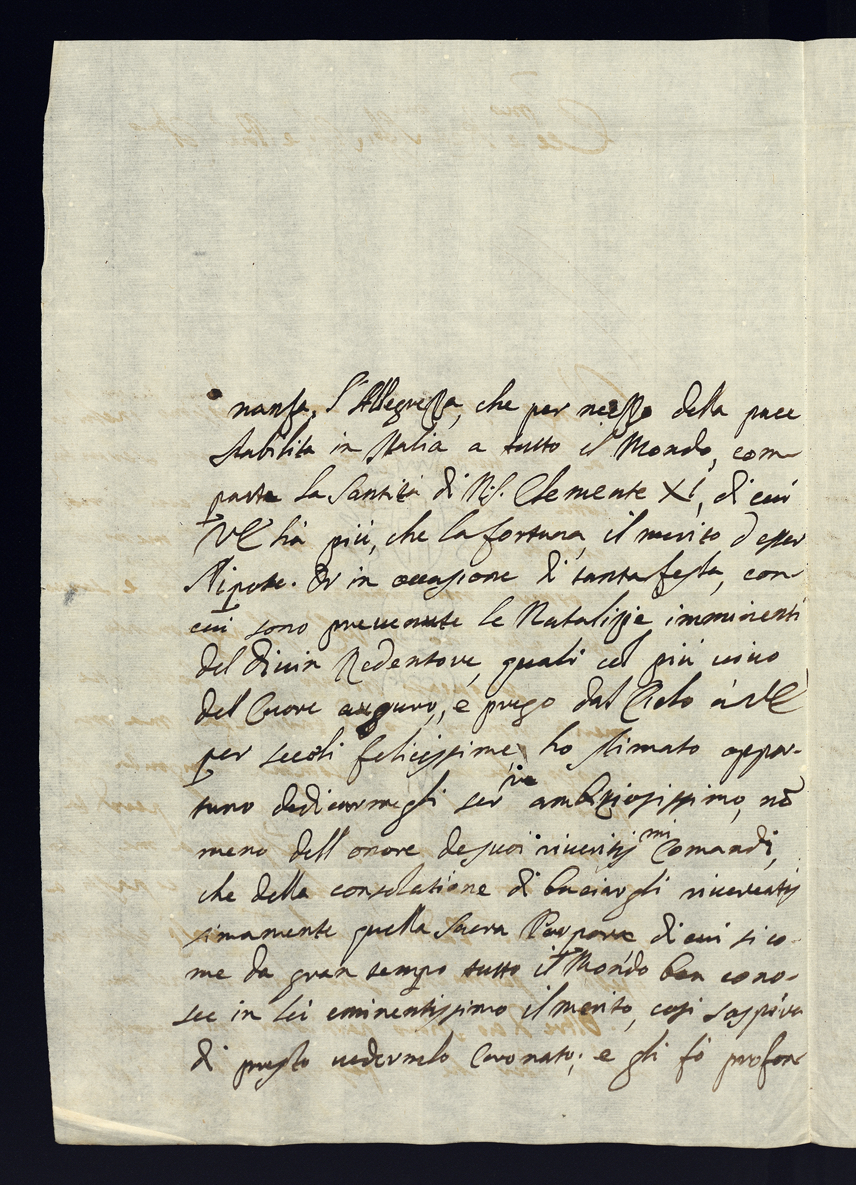 nanza, l'Allegrezza, che per mezzo della pace
stabilita in Italia a tutto il Mondo, com-
parte la Santità di N.S. Clemente XI, di cui
VE hà più, che la fortuna, il merito d'esser
Nipote. Or in occasione di tanta festa, con
cui sono prevenute le Natalizie imminenti
del divin Redentore, quali col più vivo
del Cuore auguro, e prego dal Cielo à VE
per secoli felicissime, ho stimato oppor-
tuno dedicarmegli ser.re ambiziosissimo, nõ
meno dell'onore de suoi riveritis.mi Comandi,
che della consolatione di baciargli riverentis
simamente quella Sacra Porpora di cui si co-
me da gran tempo tutto il Mondo ben cono-
sce in Lei eminentissimo il merito, così sospira
di presto vedernelo Coronato; e gli fò profon